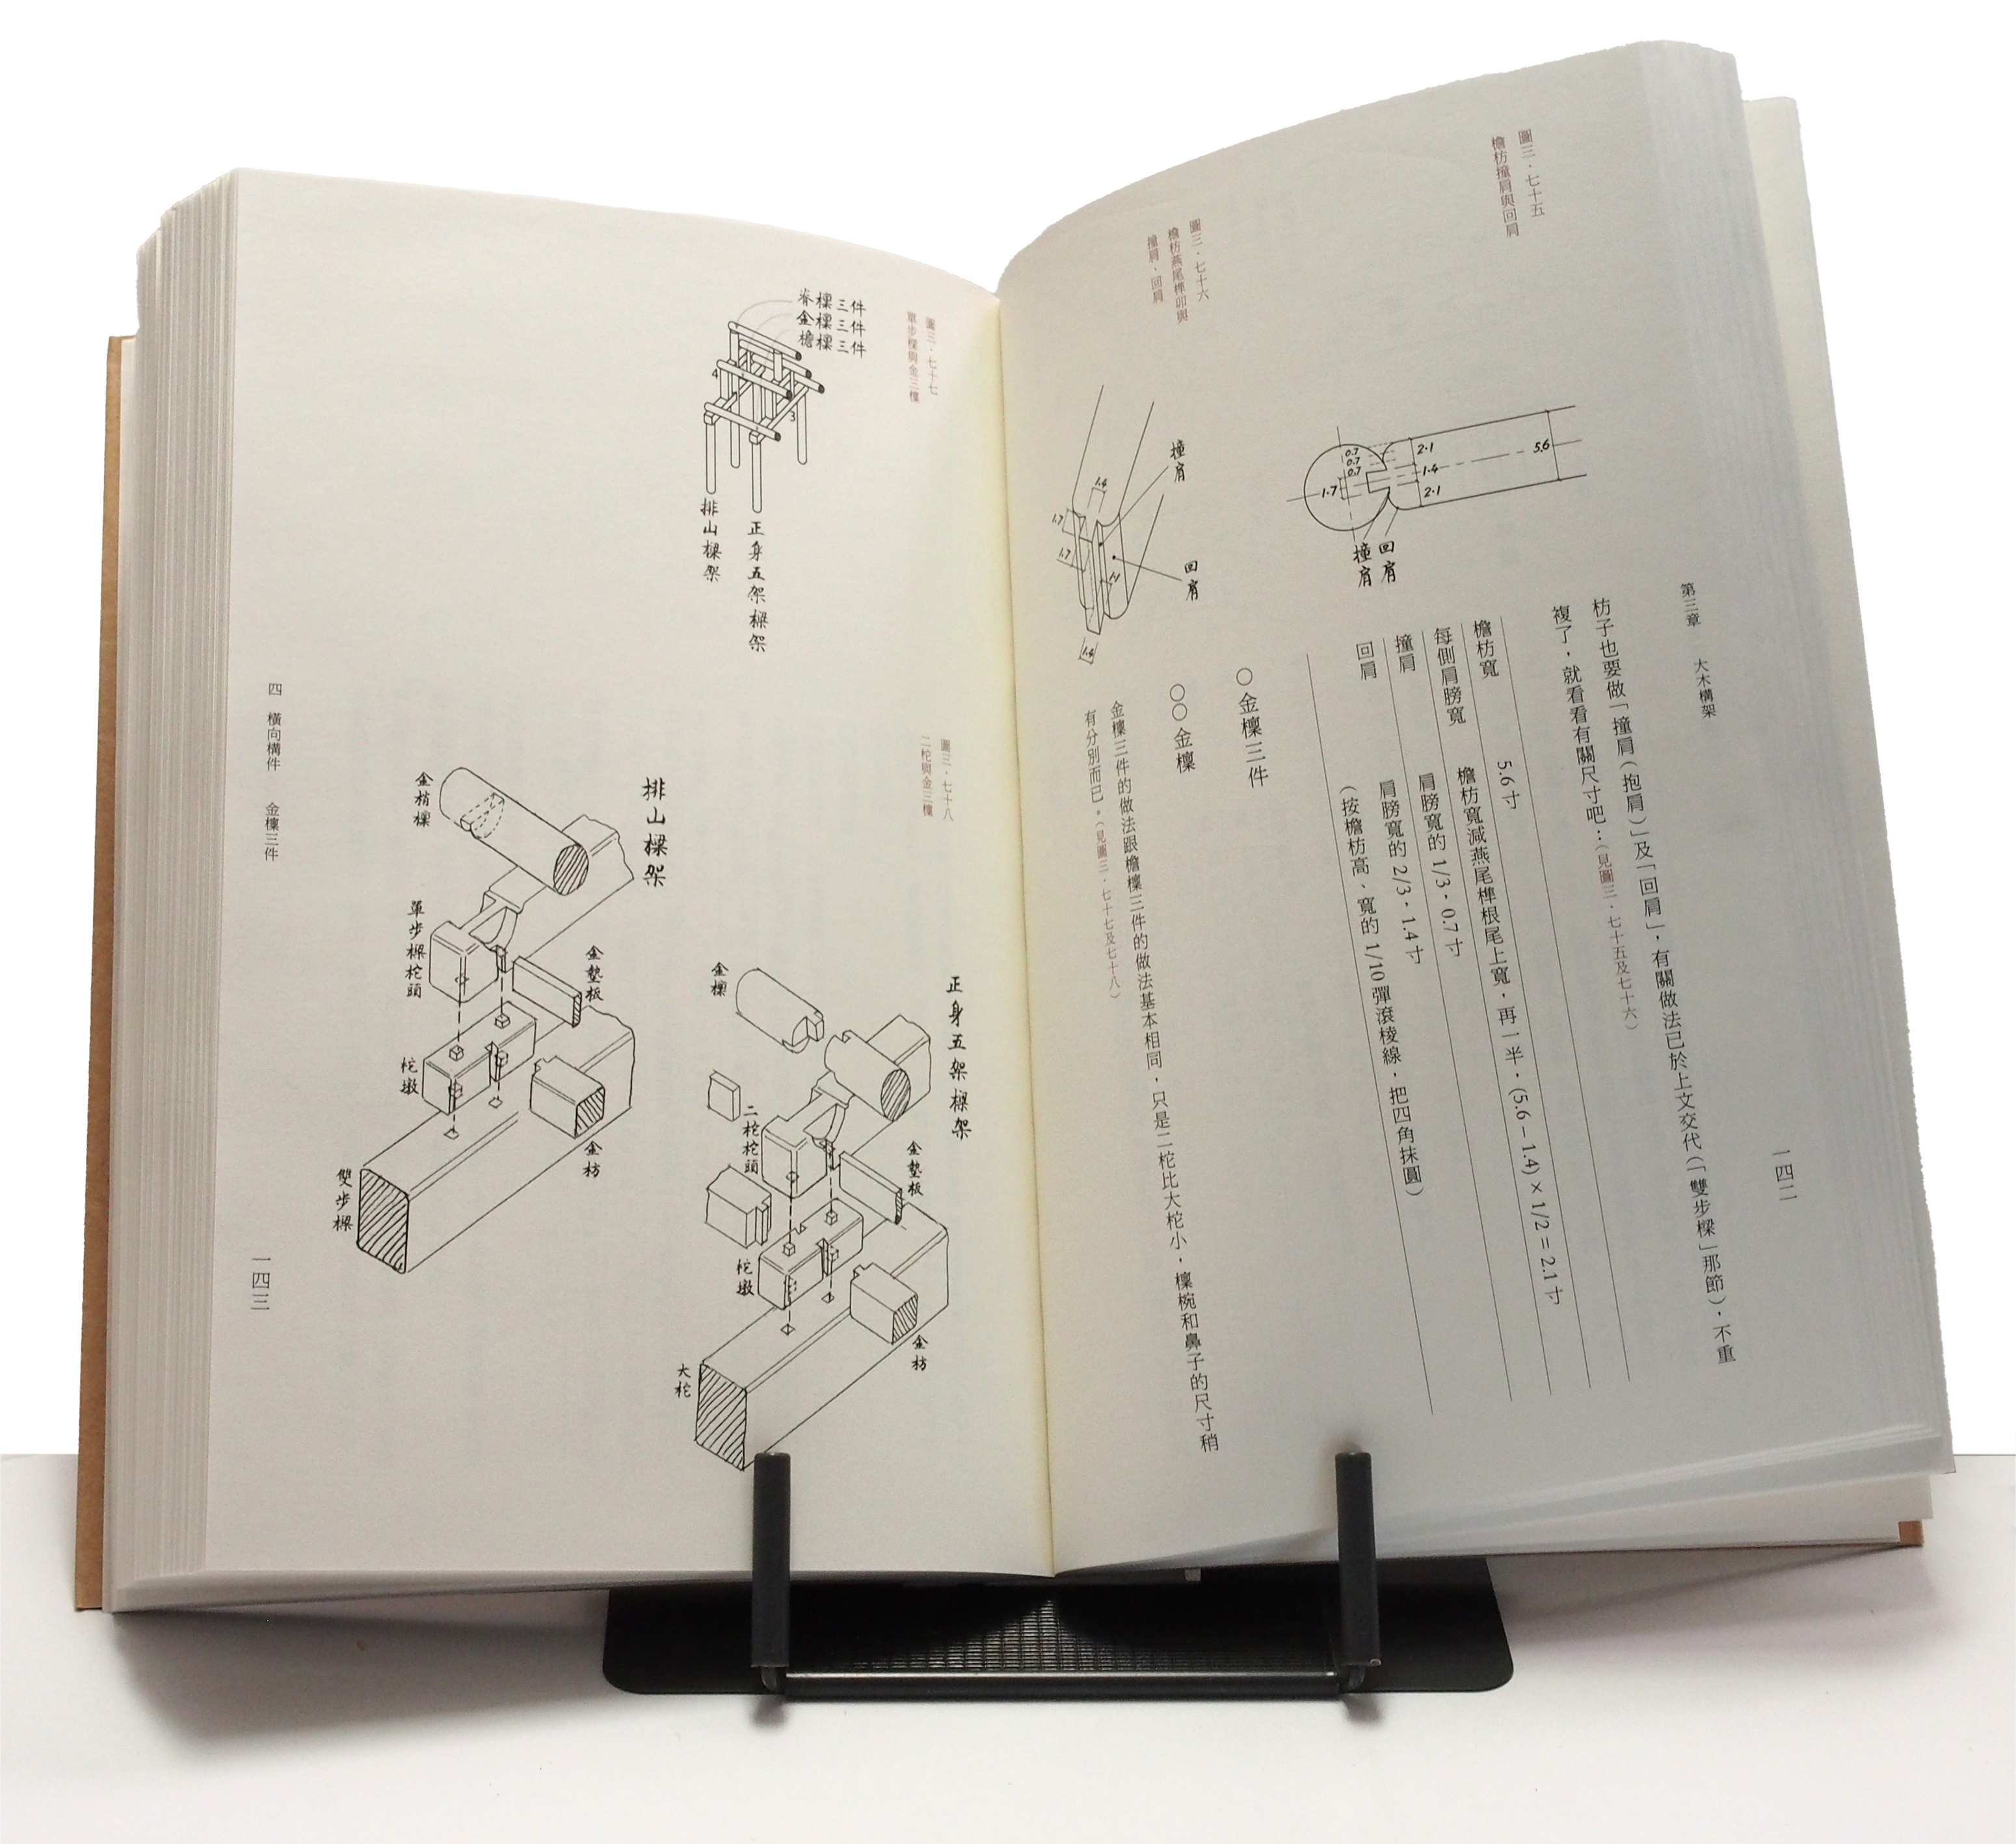 第三章 大木構架
一四二
枋子也要做「撞肩（抱肩）」及「回肩」，有關做法已於上文交代（「雙步樑」那節），不重
複了，就看看有關尺寸吧：（見圖三．七十五及七十六）
檐枋寬 5.6寸
每側肩膀寬 檐枋寬減燕尾榫根尾上寬，再一半，(5.6－1.4)×1/2＝2.1寸
撞肩 肩膀寬的 1/3，0.7寸
回肩 肩膀寬的 2/3，1.4寸
（按檐枋高、寬的 1/10彈滾棱線，把四角抹圓）
○金檁三件
○○金檁
金檁三件的做法跟檐檁三件的做法基本相同，只是二柁比大柁小，檁椀和鼻子的尺寸稍
有分別而已。（見圖三．七十七及七十八）
圖三．七十五
檐枋撞肩與回肩
0.7
0.7
0.7
1.7
2.1
1.4
2.1
5.6
回肩
撞肩
圖三．七十六
檐枋燕尾榫卯與
撞肩、回肩
撞肩
回肩
1.4
1.7
1.7
1.4
圖三．七十七
單步樑與金三檁
脊檁三件
金檁三件
檐檁三件
4
3
正身五架樑架
排山樑架
圖三．七十八
二柁與金三檁
正身五架樑架
金檁
二柁柁頭
金墊板
柁墩
金枋
大柁
排山樑架
金梢檁
單步樑柁頭
金墊板
柁墩
金枋
雙步樑
四 橫向構件 金檁三件
一四三